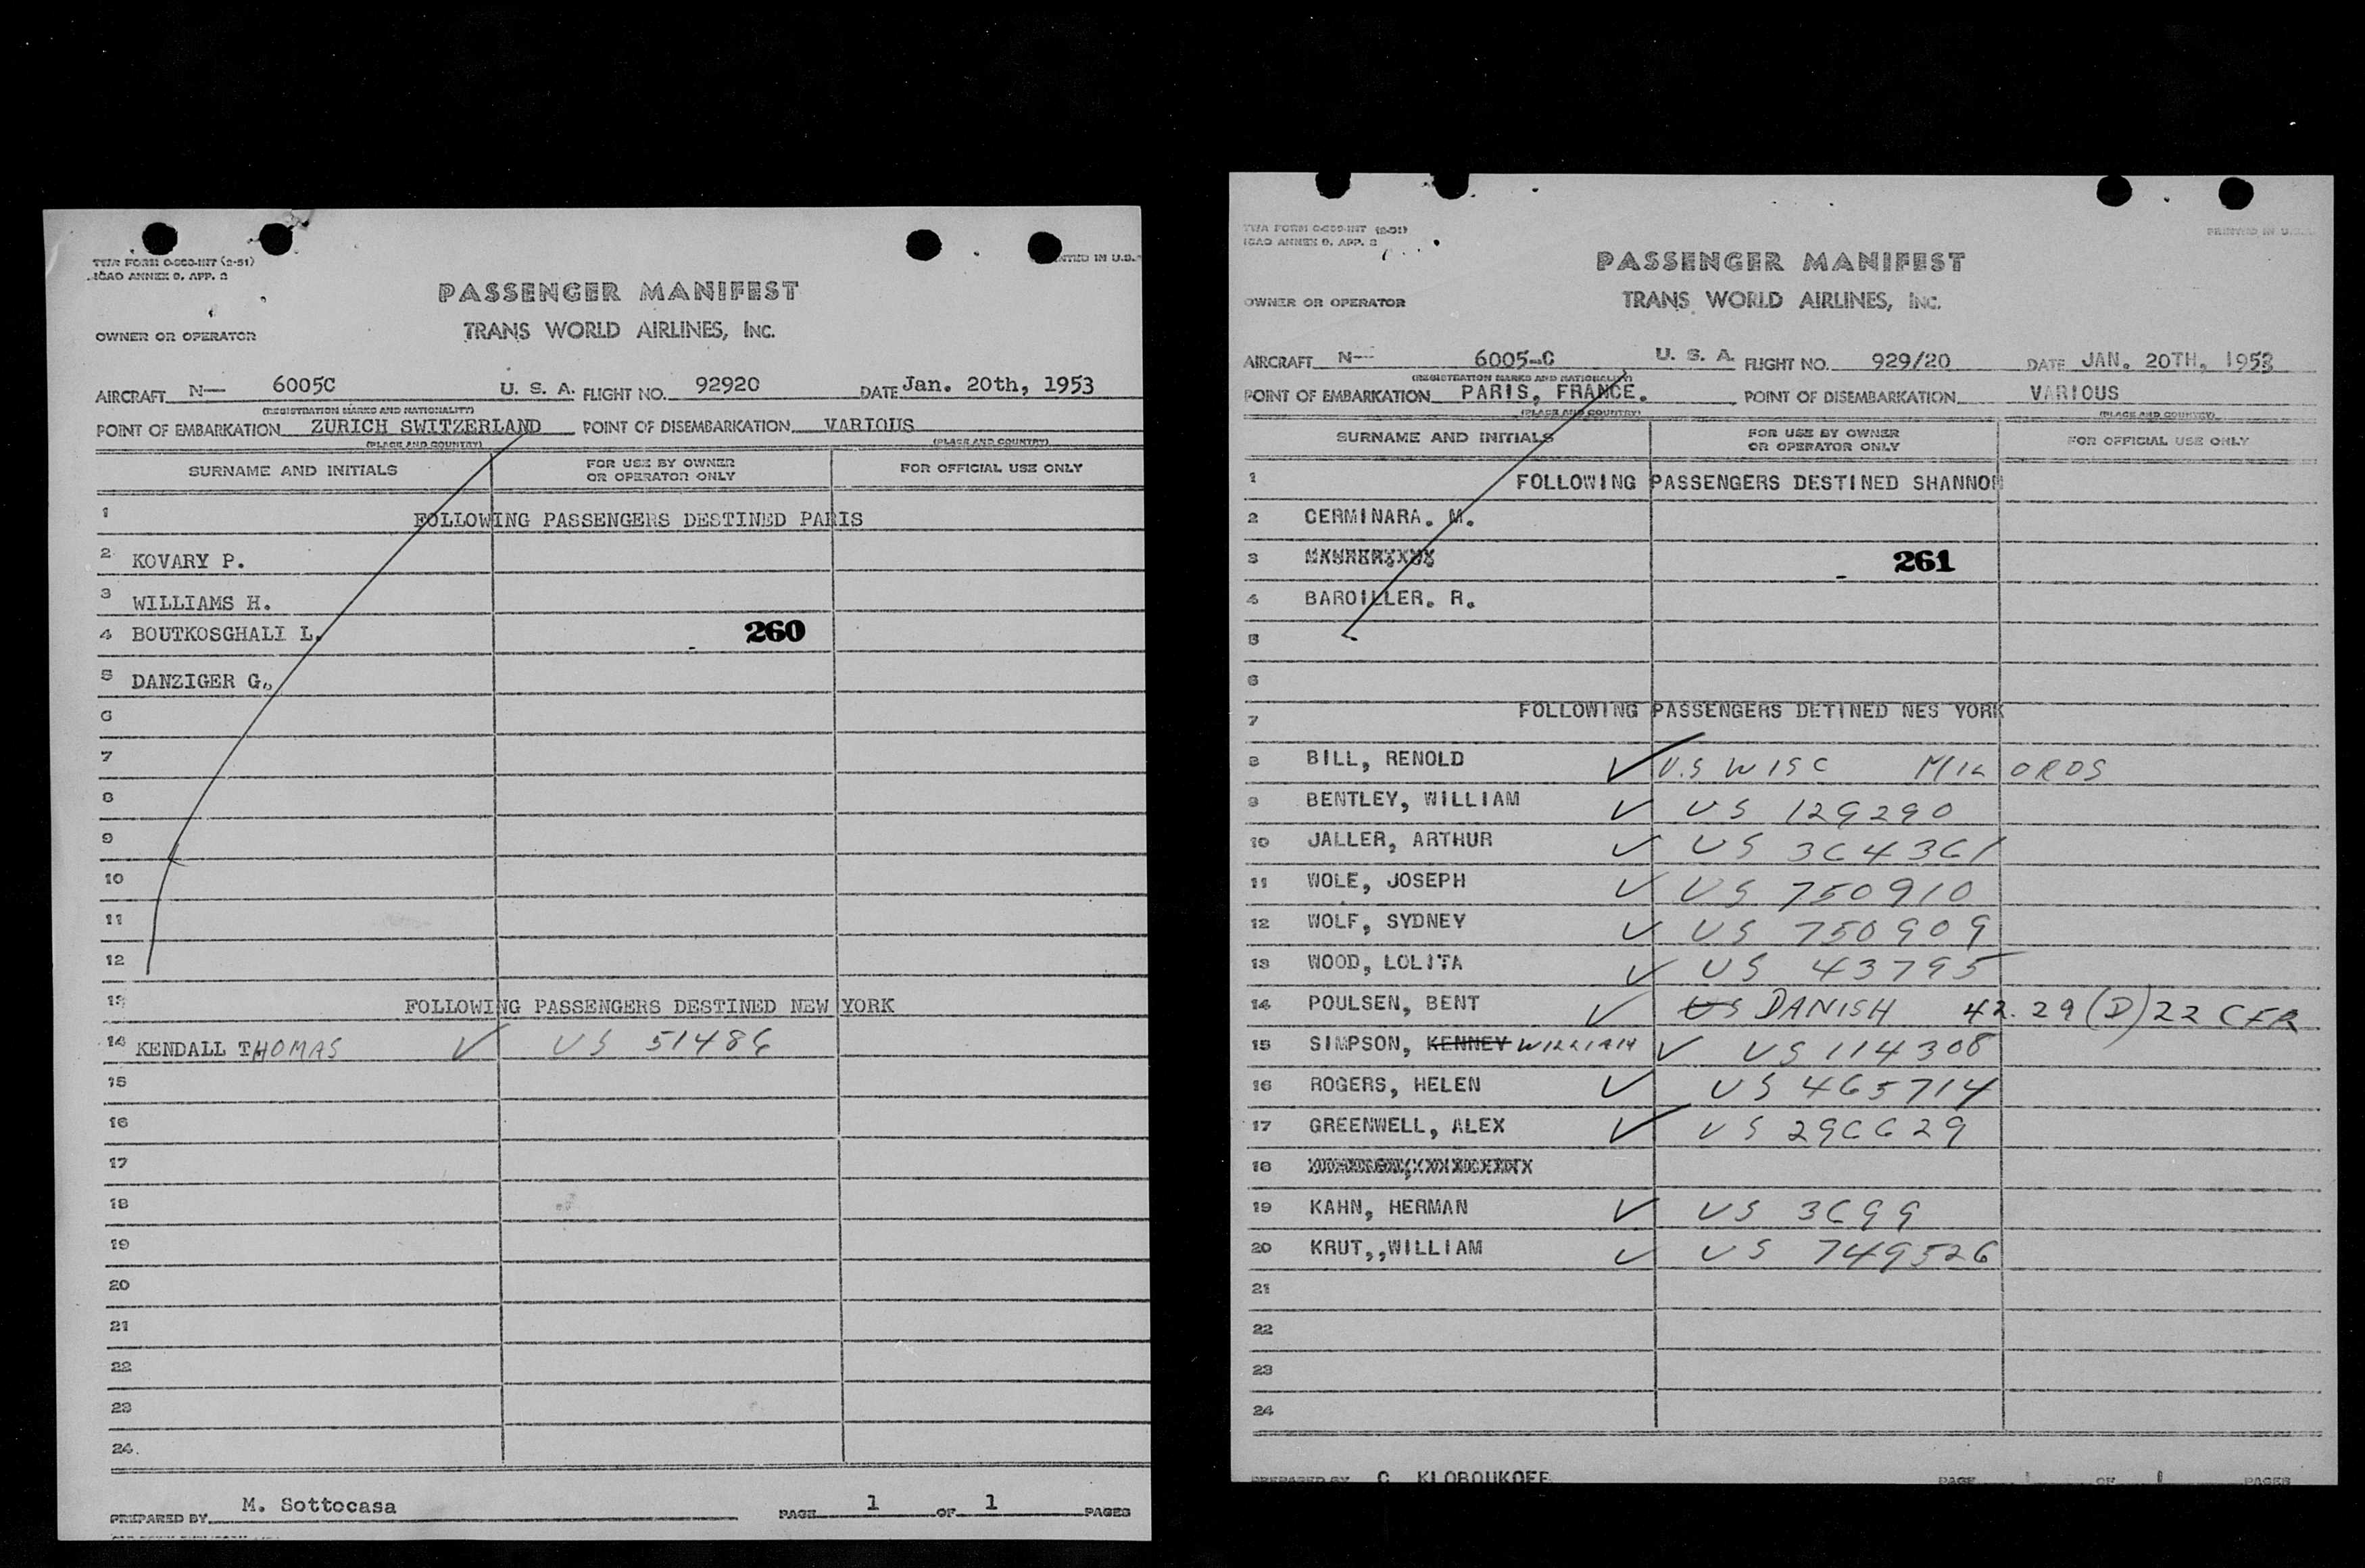 TWA FORM O-560-INT (2-51)
ICAO ANNEX 9, APP. 2
PASSENGER MANIFEST
OWNER OR OPERATOR
TRANS WORLD AIRLINES, INC.
AIRCRAFT N— 6005C U. S. A. FLIGHT NO. 92920 DATE Jan. 20th, 1953
(REGISTRATION MARKS AND NATIONALITY)
POINT OF EMBARKATION ZURICH SWITZERLAND POINT OF DISEMBARKATION VARIOUS
(PLACE AND COUNTRY) (PLACE AND COUNTRY)
SURNAME AND INITIALS FOR USE BY OWNER OR OPERATOR ONLY FOR OFFICIAL USE ONLY
1 FOLLOWING PASSENGERS DESTINED PARIS
2 KOVARY P.
3 WILLIAMS H.
4 BOUTKOSGHALI L. 260
5 DANZIGER G.
6
7
8
9
10
11
12
13 FOLLOWING PASSENGERS DESTINED NEW YORK
14 KENDALL THOMAS ✓ US 51486
15
16
17
18
19
20
21
22
23
24.
PREPARED BY M. Sottocasa PAGE 1 OF 1 PAGES
TWA FORM O-560-INT (2-51)
ICAO ANNEX 9, APP. 2
PRINTED IN U.S.
PASSENGER MANIFEST
OWNER OR OPERATOR
TRANS WORLD AIRLINES, INC.
AIRCRAFT N— 6005-C U. S. A. FLIGHT NO. 929/20 DATE JAN. 20TH, 1953
(REGISTRATION MARKS AND NATIONALITY)
POINT OF EMBARKATION PARIS, FRANCE. POINT OF DISEMBARKATION VARIOUS
(PLACE AND COUNTRY) (PLACE AND COUNTRY)
SURNAME AND INITIALS FOR USE BY OWNER OR OPERATOR ONLY FOR OFFICIAL USE ONLY
1 FOLLOWING PASSENGERS DESTINED SHANNON
2 CERMINARA. M.
3 261
4 BAROILLER. R.
5
6
7 FOLLOWING PASSENGERS DETINED NES YORK
8 BILL, RENOLD ✓ U.S WISC MIL ORDS
9 BENTLEY, WILLIAM ✓ US 129290
10 JALLER, ARTHUR ✓ US 364361
11 WOLE, JOSEPH ✓ US 750910
12 WOLF, SYDNEY ✓ US 750909
13 WOOD, LOLITA ✓ US 43795
14 POULSEN, BENT ✓ US DANISH 42.29 (D) 22 CFR
15 SIMPSON, KENNEY WILLIAM ✓ US 114308
16 ROGERS, HELEN ✓ US 465714
17 GREENWELL, ALEX ✓ US 296629
18
19 KAHN, HERMAN ✓ US 3699
20 KRUT,,WILLIAM ✓ US 749526
21
22
23
24
PREPARED BY C KLOBOUKOFF PAGE 1 OF 1 PAGES